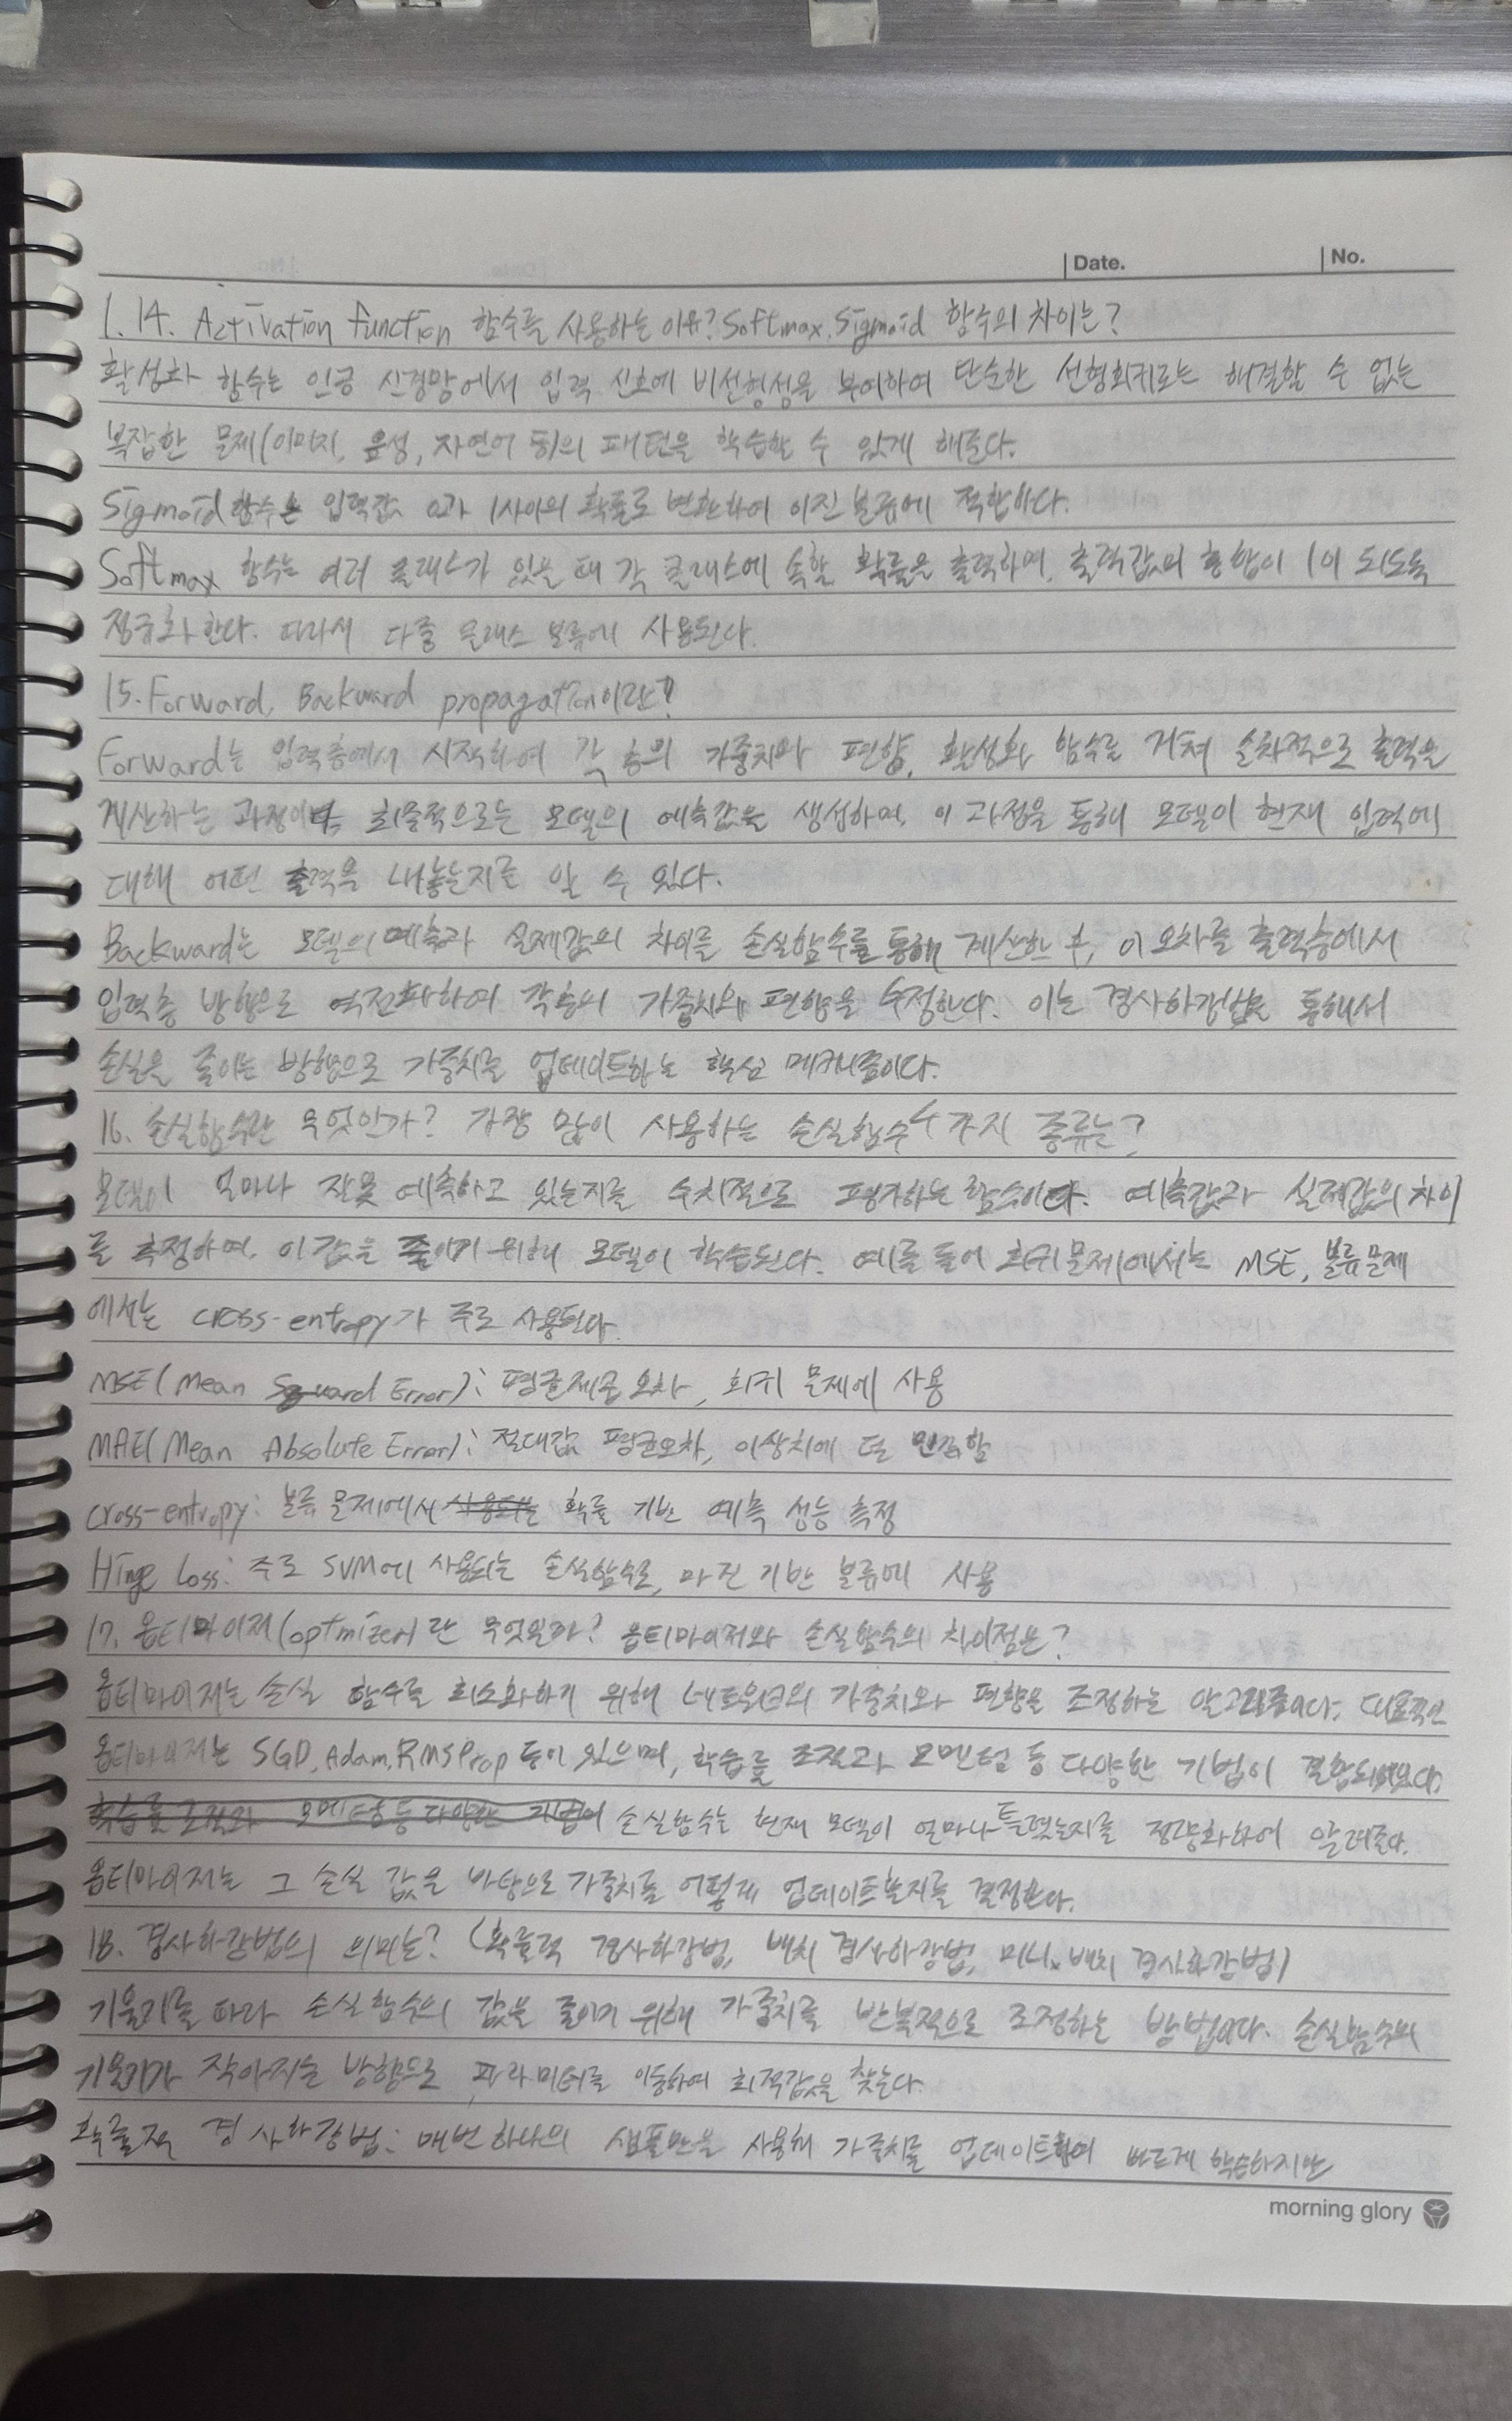 Date. No.
1. 14. Activation function 함수를 사용하는 이유? Softmax, Sigmoid 함수의 차이는?
활성화 함수는 인공 신경망에서 입력 신호에 비선형성을 부여하여 단순한 선형회귀로는 해결할 수 없는
복잡한 문제(이미지, 음성, 자연어 등)의 패턴을 학습할 수 있게 해준다.
Sigmoid 함수는 입력값 0과 1사이의 확률로 변환하여 이진 분류에 적합하다.
Softmax 함수는 여러 클래스가 있을 때 각 클래스에 속할 확률을 출력하며, 출력값의 총합이 1이 되도록
정규화 한다. 따라서 다중 클래스 분류에 사용된다.
15. Forward, Backward propagation이란?
Forward는 입력층에서 시작하여 각 층의 가중치와 편향, 활성화 함수를 거쳐 순차적으로 출력을
계산하는 과정이다. 최종적으로는 모델의 예측값을 생성하며, 이 과정을 통해 모델이 현재 입력에
대해 어떤 출력을 내놓는지를 알 수 있다.
Backward는 모델의 예측과 실제값의 차이를 손실함수를 통해 계산한 후, 이 오차를 출력층에서
입력층 방향으로 역전파하여 각층의 가중치와 편향을 수정한다. 이는 경사하강법을 통해서
손실을 줄이는 방향으로 가중치를 업데이트하는 핵심 메커니즘이다.
16. 손실함수란 무엇인가? 가장 많이 사용하는 손실함수 4가지 종류는?
모델이 얼마나 잘못 예측하고 있는지를 수치적으로 평가하는 함수이다. 예측값과 실제값의 차이
를 측정하여, 이 값을 줄이기 위해 모델이 학습된다. 예를 들어 회귀 문제에서는 MSE, 분류 문제
에서는 cross-entropy가 주로 사용된다.
MSE(Mean Squard Error): 평균제곱 오차, 회귀 문제에 사용
MAE(Mean Absolute Error): 절대값 평균오차, 이상치에 덜 민감함
cross-entropy: 분류 문제에서 사용되는 확률 기반 예측 성능 측정
Hinge Loss: 주로 SVM에 사용되는 손실함수로, 마진 기반 분류에 사용
17. 옵티마이저(optmizer)란 무엇일까? 옵티마이저와 손실함수의 차이점은?
옵티마이저는 손실 함수를 최소화하기 위해 네트워크의 가중치와 편향을 조정하는 알고리즘이다. 대표적인
옵티마이저는 SGD, Adam, RMSProp 등이 있으며, 학습률 조절과 모멘텀 등 다양한 기법이 결합되어있다.
학습률 조절과 모멘텀 등 다양한 기법이 손실함수는 현재 모델이 얼마나 틀렸는지를 정량화하여 알려준다.
옵티마이저는 그 손실 값을 바탕으로 가중치를 어떻게 업데이트할지를 결정한다.
18. 경사하강법의 의미는? (확률적 경사하강법, 배치 경사하강법, 미니 배치 경사하강법)
기울기를 따라 손실 함수의 값을 줄이기 위해 가중치를 반복적으로 조정하는 방법이다. 손실함수의
기울기가 작아지는 방향으로 파라미터를 이동하여 최적값을 찾는다.
확률적 경사하강법: 매번 하나의 샘플만을 사용해 가중치를 업데이트하여 빠르게 학습하지만
morning glory